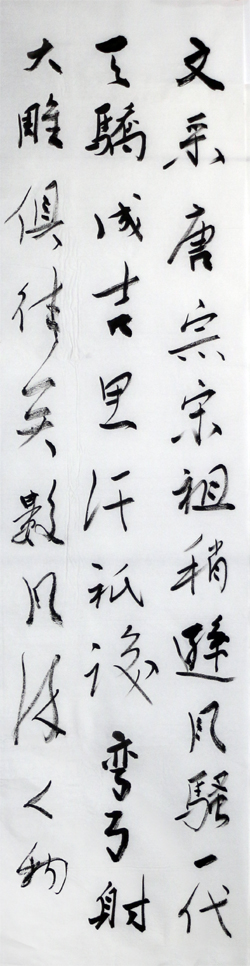 文采唐宗宋祖稍遜风騷一代
天驕成吉思汗祇識弯弓射
大雕俱往矣數风流人物